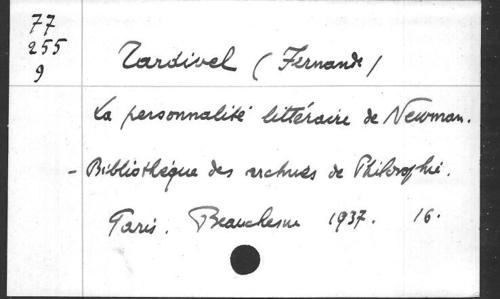 77
255
9
Tardivel (Fernande)
La personnalité littéraire de Newman.
- Bibliothèque des archives de Philosophie.
Paris. Beauchesne 1937. 16.